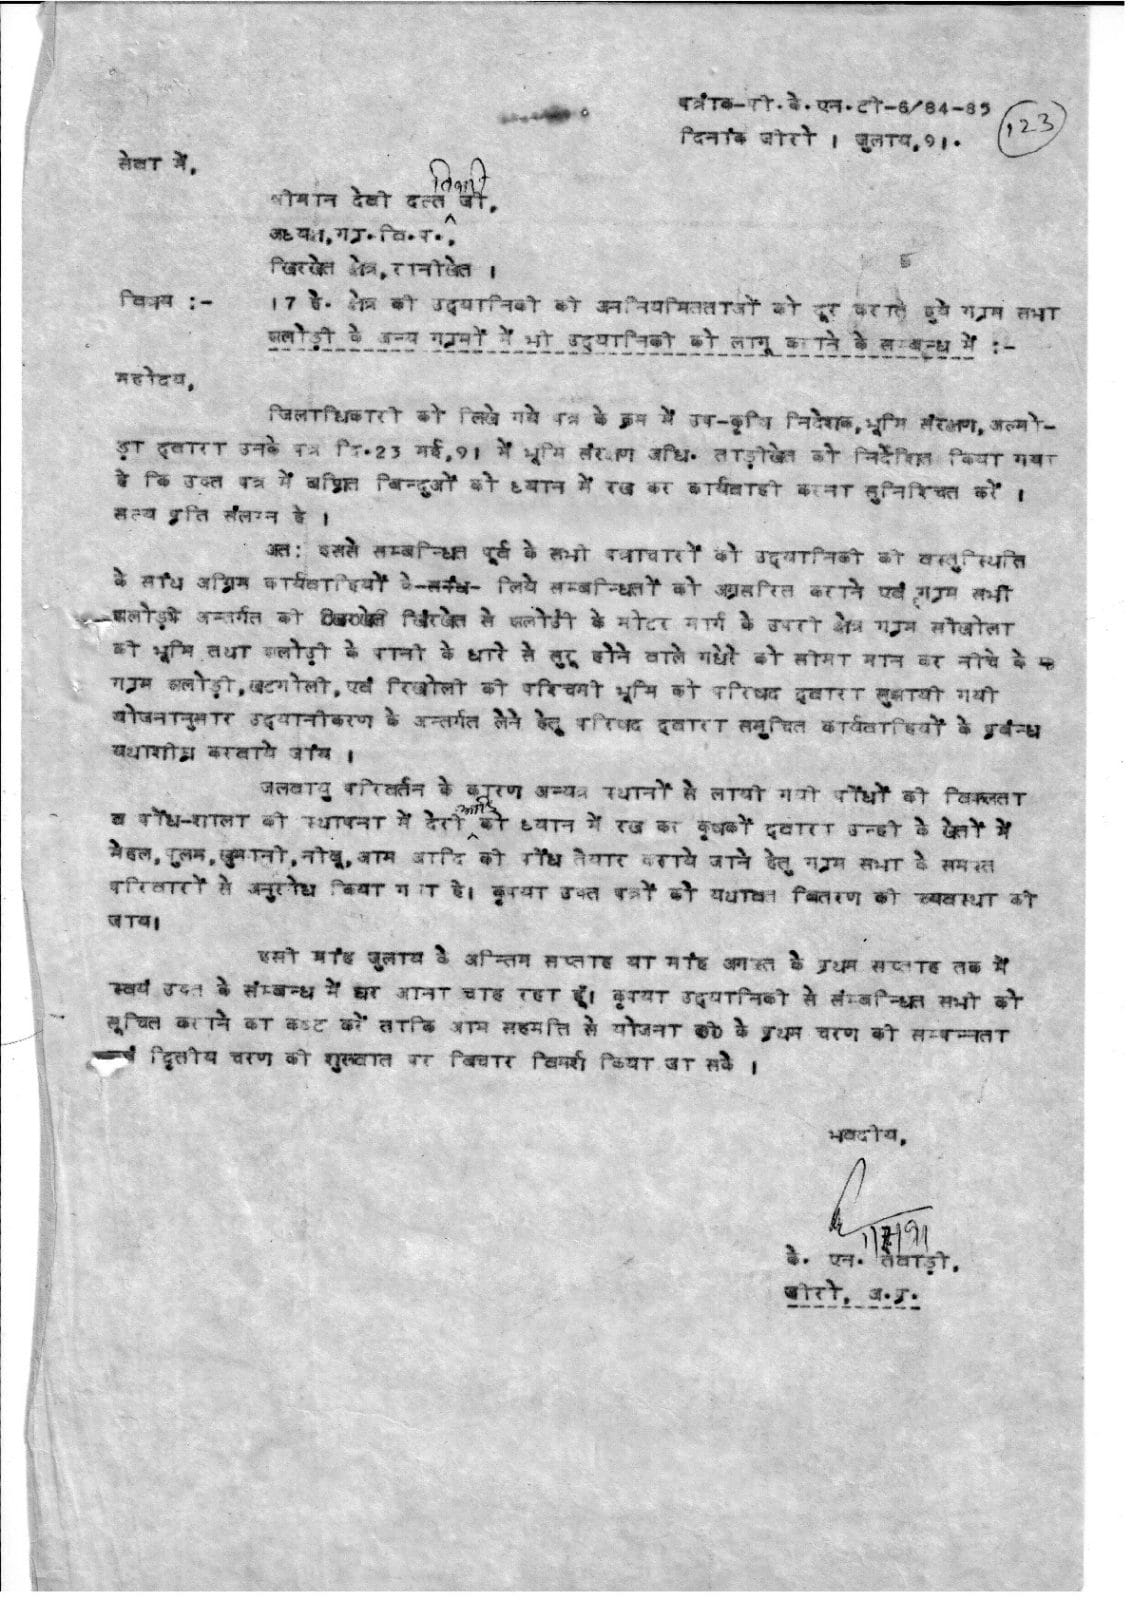 पत्रांक-पी.के.एन.टी-6/84-85
123
दिनांक जीरो 1 जुलाय,91.
सेवा में,
श्रीमान देवी दत्त तिवारी जी,
अध्यक्ष,ग्र.वि.प.,
खिरखेत क्षेत्र,रानीखेत ।
विषय :- 17 हे. क्षेत्र की उद्यानिकी की अननियमितताओं को दूर कराते हुये ग्राम सभा
झलोड़ी के अन्य ग्रामों में भी उद्यानिकी को लागू कराने के सम्बन्ध में :-
महोदय,
जिलाधिकारी को लिखे गये पत्र के क्रम में उप-कृषि निदेशक,भूमि संरक्षण,अल्मो-
ड़ा द्वारा उनके पत्र दि.23 मई,91 में भूमि संरक्षण अधि. ताड़ीखेत को निर्देशित किया गया
है कि उक्त पत्र में वर्णित बिन्दुओं को ध्यान में रख कर कार्यवाही करना सुनिश्चित करें ।
सत्य प्रति संलग्न है ।
अत: इससे सम्बन्धित पूर्व के सभी पत्राचारों को उद्यानिकी की वस्तुस्थिति
के साथ अग्रिम कार्यवाहियों के लिये सम्बन्धितों को अग्रसरित कराने एवं ग्राम सभी
झलोड़ी अन्तर्गत की खिरखेत से झलोड़ी के मोटर मार्ग के उपरी क्षेत्र ग्राम सौखोला
की भूमि तथा झलोड़ी के पानी के धारे से लुरू होने वाले गधेरे को सीमा मान कर नीचे के
ग्राम झलोड़ी,खटगोली,एवं रिखोली की पश्चिमी भूमि को परिषद द्वारा सुझायी गयी
योजनानुसार उद्यानीकरण के अन्तर्गत लेने हेतू परिषद द्वारा समुचित कार्यवाहियों के प्रबंन्ध
यथाशीघ्र करवाये जांय ।
जलवायु परिवर्तन के कारण अन्यत्र स्थानों से लायी गयी पौंधों की विफलता
व पौंध-शाला की स्थापना में देरी आदि को ध्यान में रख कर कृषकों द्वारा उन्ही के खेतों में
मेहल,पुलम,खुमानी,नीबू,आम आदि की पौंध तैयार कराये जाने हेतु ग्राम सभा के समस्त
परिवारों से अनुरोध किया गया है। कृपया उक्त पत्रों को यथावत वितरण की व्यवस्था की
जाय।
इसी मांह जुलाय के अन्तिम सप्ताह या मांह अगस्त के प्रथम सप्ताह तक में
स्वयं उक्त के संम्बन्ध में घर आना चाह रहा हूँ। कृपया उद्यानिकी से संम्बन्धित सभी को
सूचित कराने का कष्ट करें ताकि आम सहमति से योजना के प्रथम चरण की सम्पन्नता
द्वितीय चरण की शुरूवात पर विचार विमर्श किया जा सके ।
भवदीय,
के. एन. तेवाड़ी,
जीरो, अ.प्र.